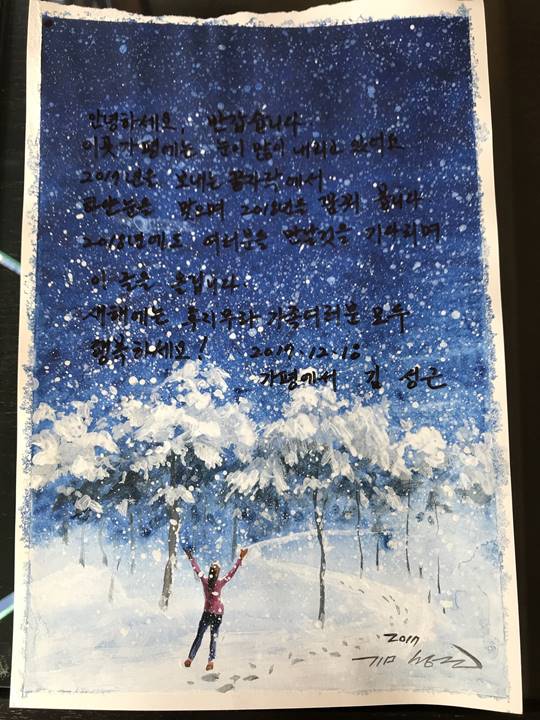 안녕하세요! 반갑습니다.
이곳 가평에는 눈이 많이 내리고 있어요
2017년을 보내는 끝자락에서
하얀눈을 맞으며 2018년을 맞게 됩니다
2018년에도 여러분을 만날것을 기대하며
이 글을 남깁니다.
새해에는 후지우라 가족여러분 모두
행복하세요! 2017.12.18
가평에서 김 성근
2017